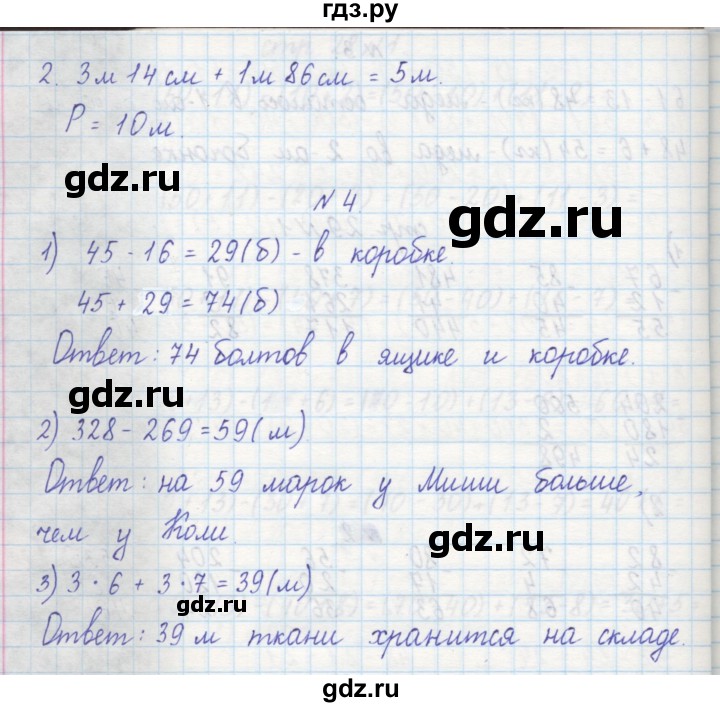 гдз.ру
2. 3м 14см + 1м 86см = 5м.
P = 10м.
gdz.ru
N 4.
gdz.ru
1) 45 - 16 = 29(б) - в коробке.
45 + 29 = 74(б)
Ответ: 74 болтов в ящике и коробке.
gdz.ru
2) 328 - 269 = 59(м)
Ответ: на 59 марок у Миши больше,
чем у Коли.
gdz.ru
3) 3 · 6 + 3 · 7 = 39(м)
gdz.ru
Ответ: 39 м ткани хранится на складе.
gdz.ru